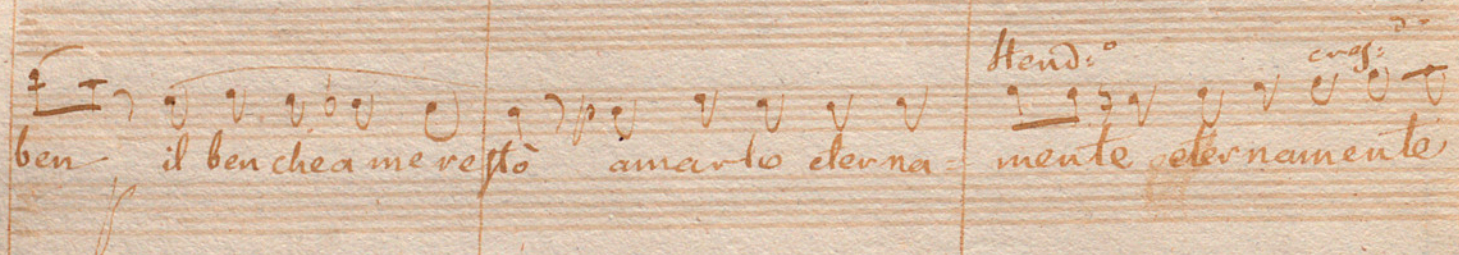 Stend:° cres:
ben il ben che a me restò amarlo eterna= mente eternamente